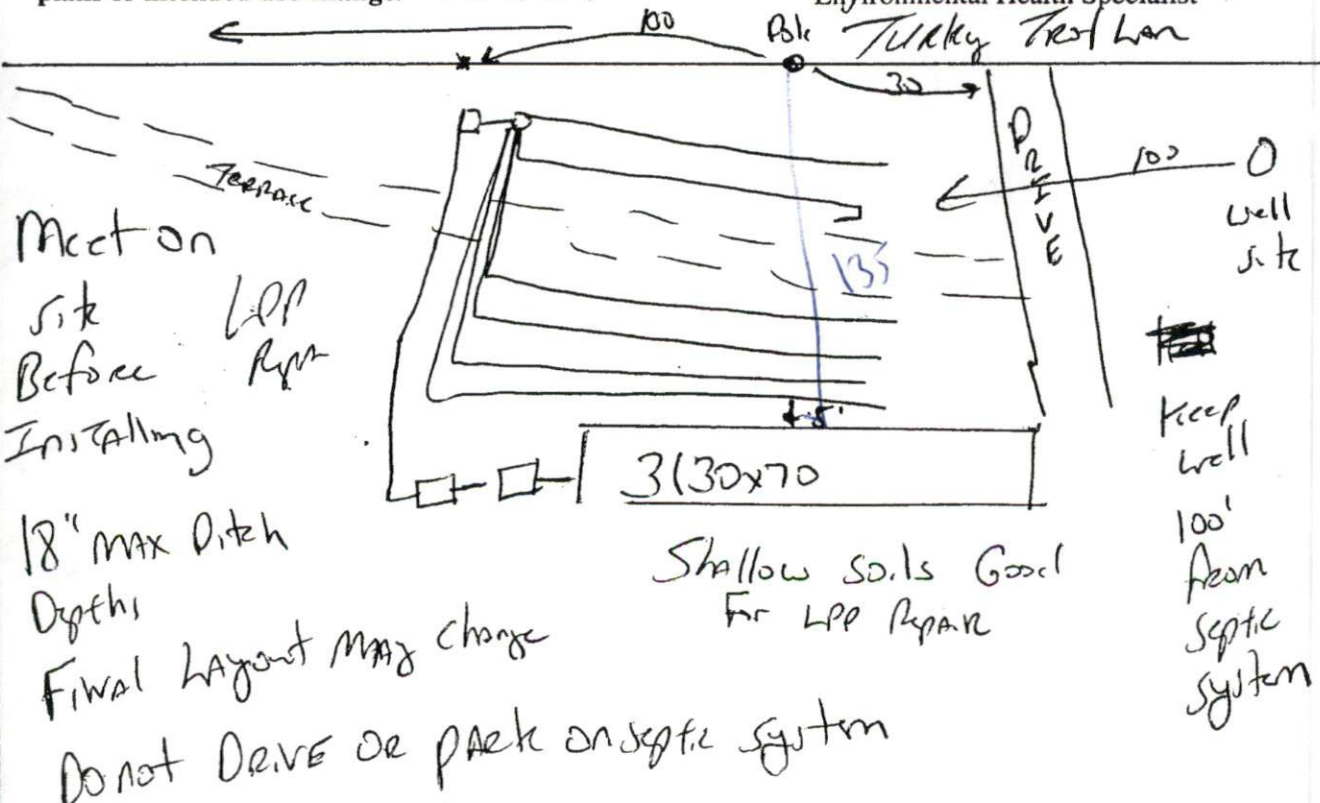 Environmental Health Specialist
100
Pole
Turky Trot Lan
30
DRIVE
100
well
site
Terrace
135
Meet on
site
Before
Installing
LPP
Repr
5'
3(30x70
Keep
well
100'
from
septic
system
18" MAX Ditch
Depths
Shallow soils Good
For LPP Repair
Final Layout MAy change
Do not DRIVE OR pARk on septic system